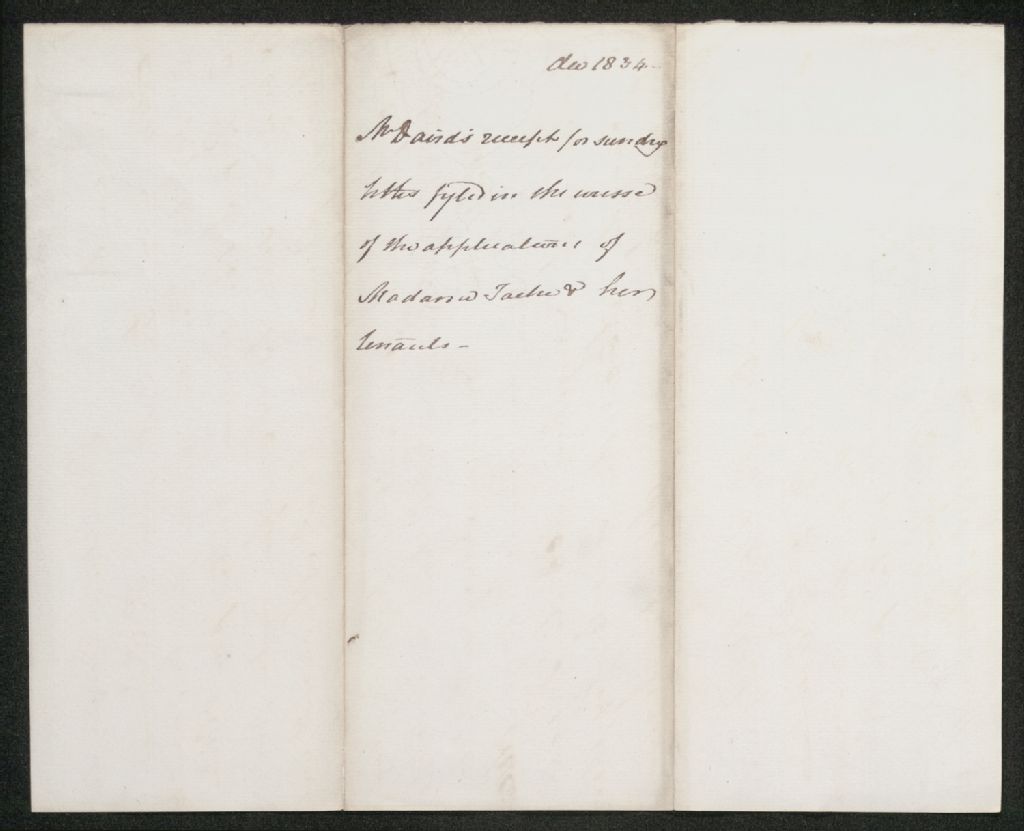 Dec 1834
Mr David's receipt for sundry
titles fyled in the course
of the applications of
Madame Taché & her
tenants -